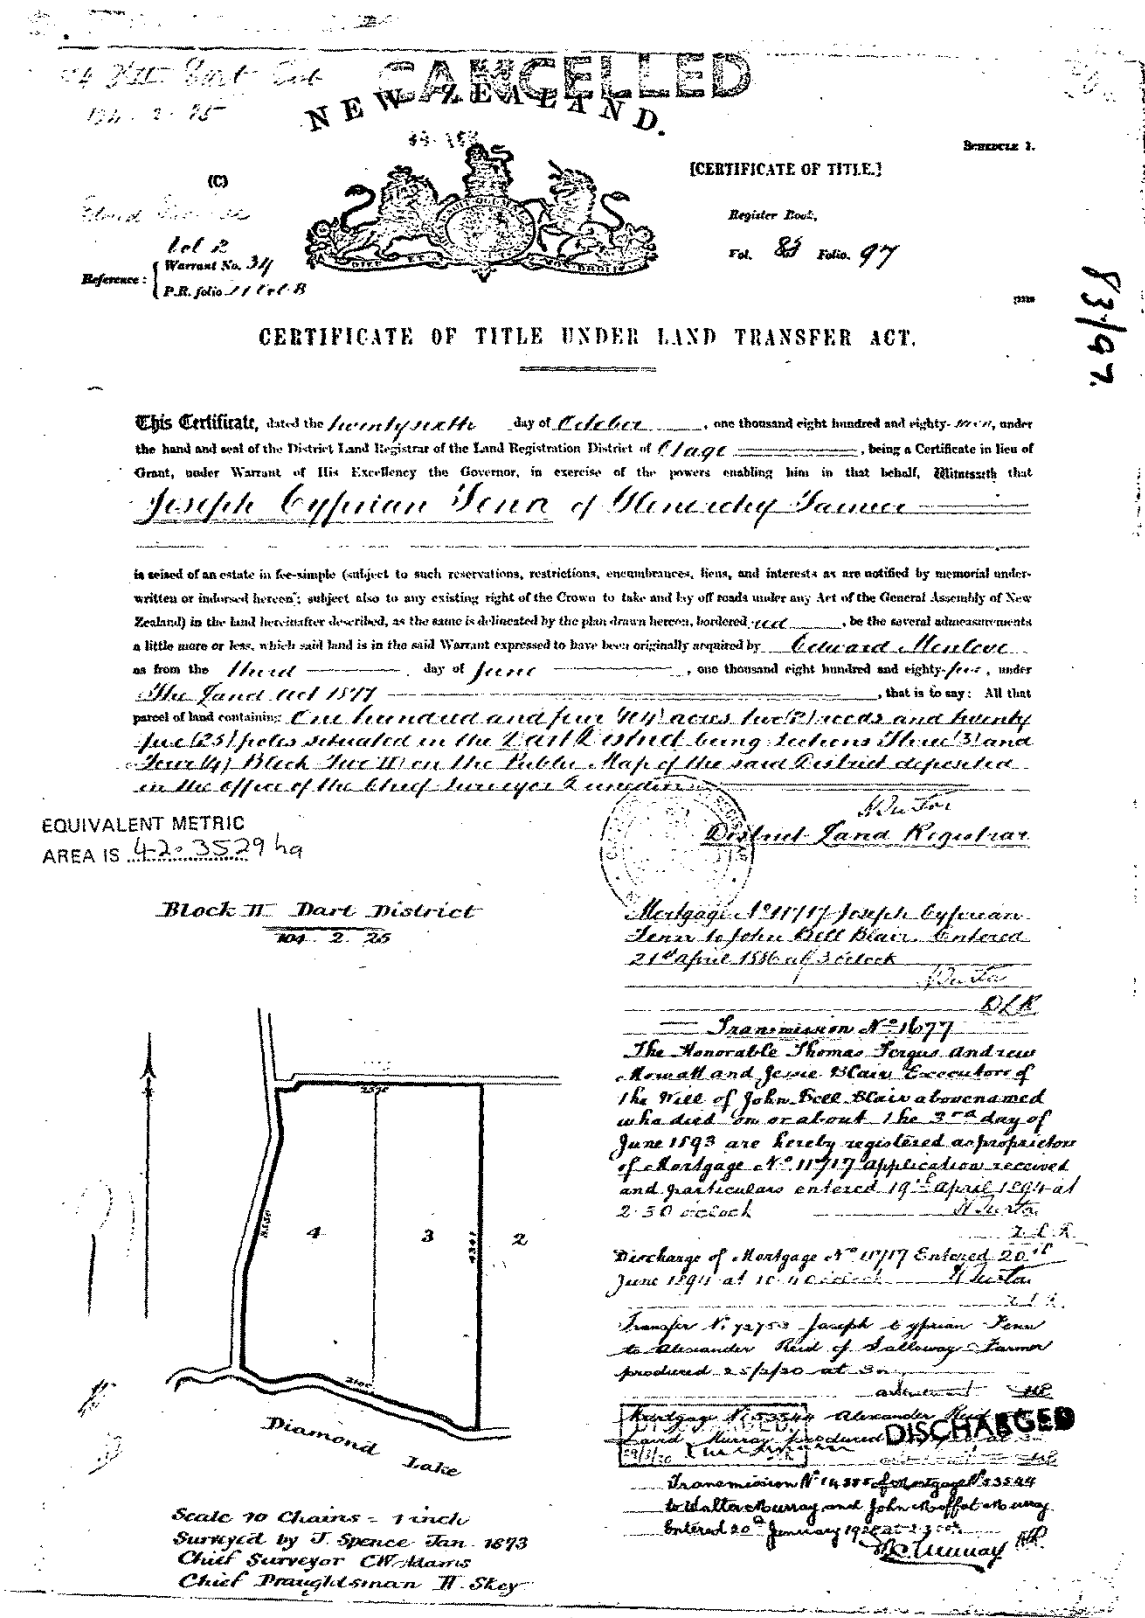 CANCELLED
NEW ZEALAND.
SCHEDULE 1.
[CERTIFICATE OF TITLE.]
(C)
Register Book,
Vol. 83 Folio. 97
Reference: Vol 2
Warrant No. 34
P.R. folio 11 Vol. B
83/97.
CERTIFICATE OF TITLE UNDER LAND TRANSFER ACT.
This Certificate, dated the twenty sixth day of October, one thousand eight hundred and eighty-, under
the hand and seal of the District Land Registrar of the Land Registration District of Otago, being a Certificate in lieu of
Grant, under Warrant of His Excellency the Governor, in exercise of the powers enabling him in that behalf, Witnesseth that
Joseph Cyprian Fenn of Glenorchy Farmer
is seised of an estate in fee-simple (subject to such reservations, restrictions, encumbrances, liens, and interests as are notified by memorial under-
written or indorsed hereon; subject also to any existing right of the Crown to take and lay off roads under any Act of the General Assembly of New
Zealand) in the land hereinafter described, as the same is delineated by the plan drawn hereon, bordered red, be the several admeasurements
a little more or less, which said land is in the said Warrant expressed to have been originally acquired by Edward Menlove
as from the third day of June, one thousand eight hundred and eighty-, under
The Land Act 1877, that is to say: All that
parcel of land containing One hundred and four (104) acres two (2) roods and twenty
five (25) poles situated in the Dart District being Sections Three (3) and
Four (4) Block Two (II) on the Public Map of the said District deposited
in the office of the Chief Surveyor Dunedin
District Land Registrar
EQUIVALENT METRIC
AREA IS 42.3529 ha
Block II Dart District
104. 2. 25
Mortgage No 11717 Joseph Cyprian
Fenn to John Bell Blair. Entered
21st April 1886 at 3 oclock
DLR
Transmission No 1677
The Honorable Thomas Fergus Andrew
Mowatt and Jessie Blair Executors of
the Will of John Bell Blair abovenamed
who died on or about the 3rd day of
June 1893 are hereby registered as proprietors
of Mortgage No 11717 application received
and particulars entered 19th April 1894 at
2.30 oclock
D.L.R.
Discharge of Mortgage No 11717 Entered 20th
June 1894 at oclock
D.L.R.
Transfer No 72753 Joseph Cyprian Fenn
to Alexander Reid of Galloway Farmer
produced 25/2/20 at 3
Mortgage No 53544 Alexander Reid
David Murray produced
DISCHARGED
DISCHARGED
29/3/20
Transmission No 14585 of Mortgage No 53544
to Walter Murray and John Moffat Murray.
Entered 20th January
4
3
2
4341
2100
Diamond Lake
Scale 10 Chains = 1 inch
Surveyed by J. Spence Jan. 1873
Chief Surveyor CW Adams
Chief Draughtsman W. Skey